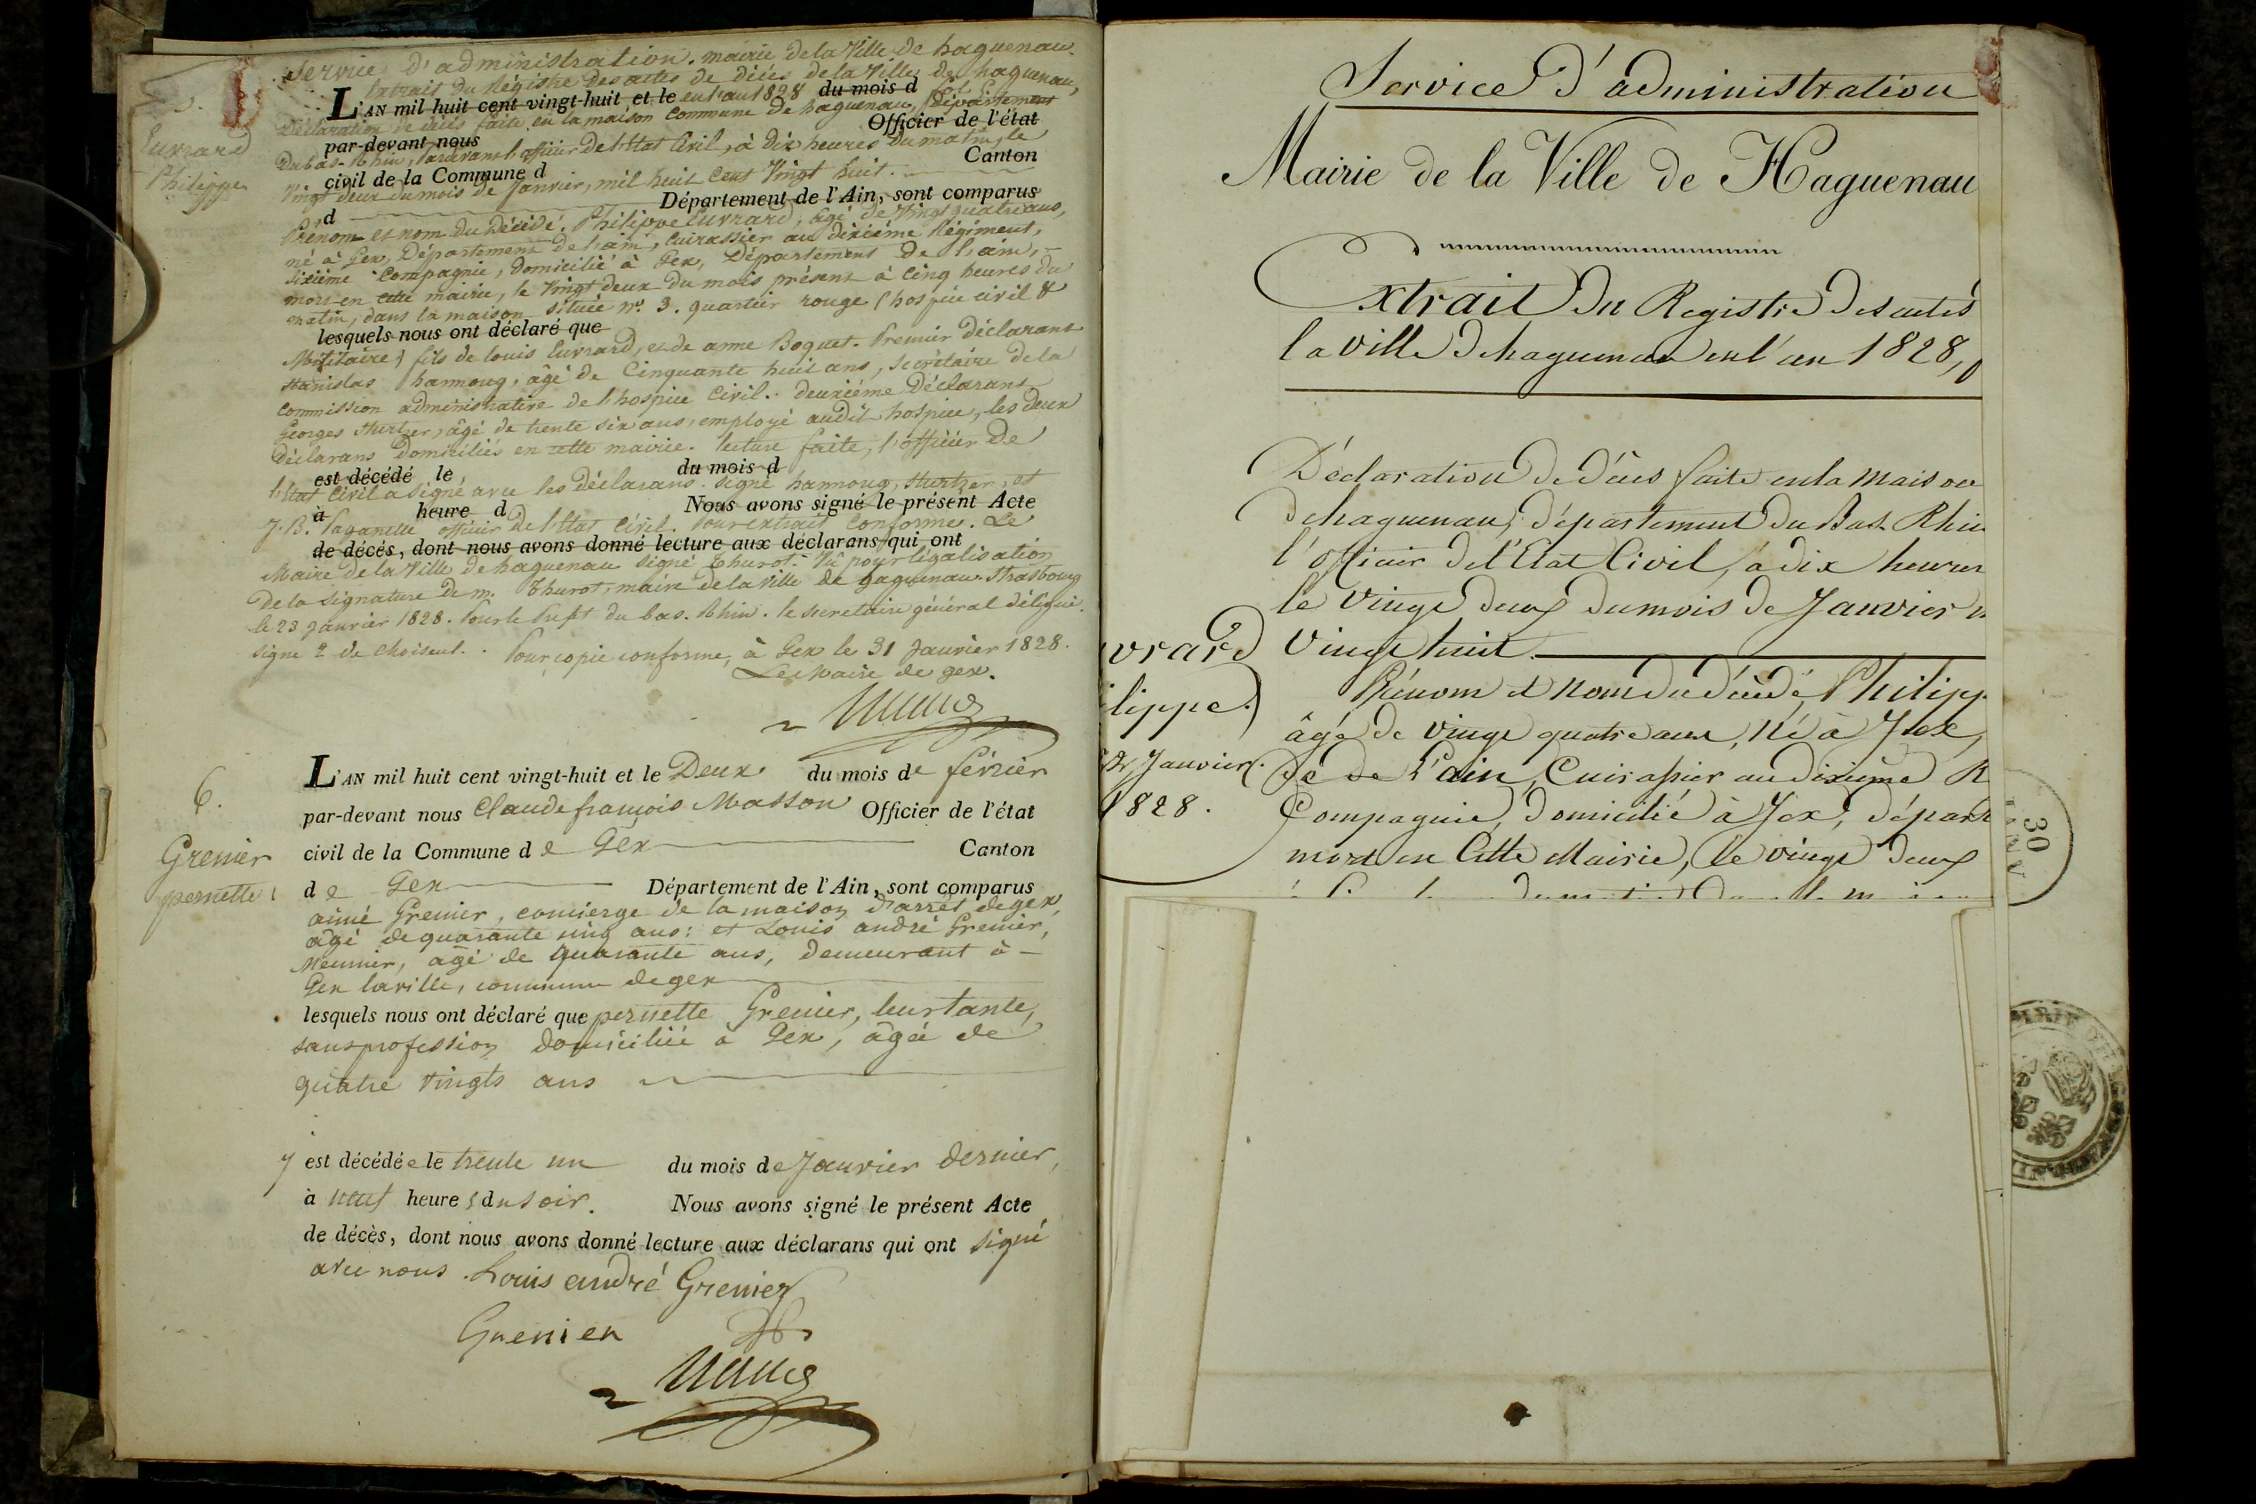 Service d'administration. mairie de la Ville de haguenau.
Extrait du Régistre des actes de décès de la Ville de haguenau,
L'AN mil huit cent vingt-huit et le en l'an 1828 du mois d
Déclaration de décès faite en la maison commune de haguenau, Département
par-devant nous Officier de l'état
Du bas-Rhin, pardevant l'officier de l'Etat Civil, à dix heures du matin, le
civil de la Commune d Canton
Vingt deux du mois de Janvier, mil huit Cent Vingt huit.
d Département de l'Ain, sont comparus
Prénom et nom du Décédé, Philippe Euvrard, âgé de Vingt quatre ans,
né à Gex, Département de l'ain, Cuirassier au dixième Régiment,
sixième Compagnie, domicilié à Gex, Département de l'ain,
mort en cette mairie, le Vingt deux du mois présent à Cinq heures du
matin, dans la maison située n.º 3. quartier rouge (hospice civil &
lesquels nous ont déclaré que
Militaire) fils de louis Euvrard, et de anne Boquet. Premier Déclarant
stanislas hannoug, âgé de Cinquante huit ans, secrétaire de la
Commission administrative de l'hospice Civil. deuxième Déclarant
Georges Hurtzer, âgé de trente six ans, employé audit hospice, les deux
Déclarans domiciliés en cette mairie. lecture faite, l'officier de
est décédé le du mois d
l'Etat Civil a signé avec les déclarans. signé hannoug, Hurtzer, et
à heure d Nous avons signé le présent Acte
J. B. Paganelle officier de l'Etat Civil. Pour extrait Conforme. Le
de décès, dont nous avons donné lecture aux déclarans qui ont
Maire de la Ville de haguenau signé Thurot. Vû pour légalisation
De la signature de m. Thurot, maire de la Ville de haguenau. Strasbourg
le 23 janvier 1828. Pour le Préft du bas-Rhin. le secretaire général délégué.
signé de Choiseul. Pour copie conforme, à Gex le 31 Janvier 1828.
Le Maire de gex.
5.
Euvrard
Philippe
6.
Grenier
pernette
L'AN mil huit cent vingt-huit et le Deux du mois de février
par-devant nous Claude françois Masson Officier de l'état
civil de la Commune de Gex Canton
de Gex Département de l'Ain, sont comparus
aimé Grenier, concierge de la maison d'arrêt de gex,
âgé de quarante cinq ans: et Louis andré Grenier,
Meunier, âgé de quarante ans, demeurant à
Gex la ville, commune de gex
lesquels nous ont déclaré que pernette Grenier, leur tante,
sans profession domiciliée à Gex, âgée de
quatre vingts ans
y est décédée le trente un du mois de Janvier dernier,
à neuf heures du soir. Nous avons signé le présent Acte
de décès, dont nous avons donné lecture aux déclarans qui ont signé
avec nous. Louis andré Grenier
Grenier
Service d'administration
Mairie de la Ville de Haguenau
Extrait du Registre des actes
la ville de haguenau en l'an 1828,
Déclaration de décès faite en la Maison
de haguenau, département du Bas-Rhin
l'officier de l'Etat Civil, à dix heures
le vingt deux du mois de Janvier
vingt huit.
vrard
ilippe.
Janvier
1828.
Prénom et nom du décédé, Philipp
âgé de vingt quatre ans, né à Jex,
de l'ain, Cuirassier au dixième R
Compagnie, domicilié à Jex, départ
mort en Cette Mairie, le vingt deux
30
JANV